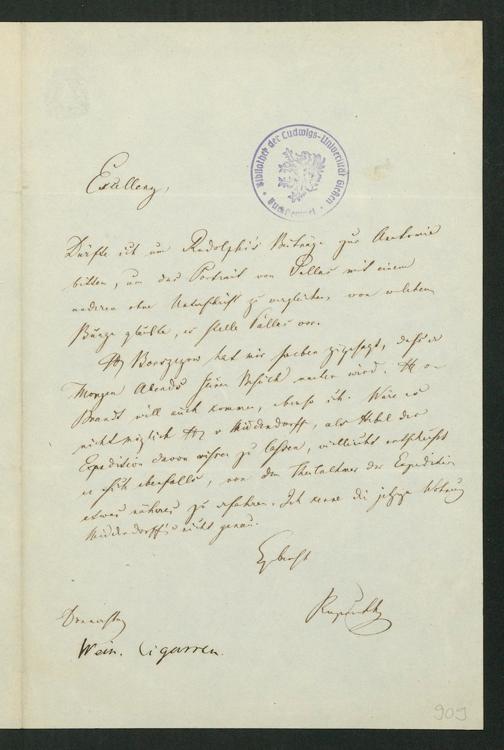 Bibliothek der Ludwigs-Universität Gießen
Excellenz,
Dürfte ich um Rudolphi's Beiträge zur Anatomie
bitten, um das Portrait von Pallas mit einem
anderen ohne Unterschrift zu vergleichen, von welchem
Bunge glaubte, es stelle Pallas vor.
H. hat mir soeben zugesagt, dass er
Morgen Abends seinen Besuch machen wird. H. v
Brandt will auch kommen, ebenso ich. Wäre es
nicht möglich H. v Middendorff, als Hebel der
Expedition davon wissen zu lassen, vielleicht entschließt
er sich ebenfalls, von den Theilnehmer der Expedition
etwas näheres zu erfahren. Ich kenne die jetzige Wohnung
Middendorff's nicht genau.
Ergebenst
Ruprecht
Dienstag
Wein. Cigarren.
909